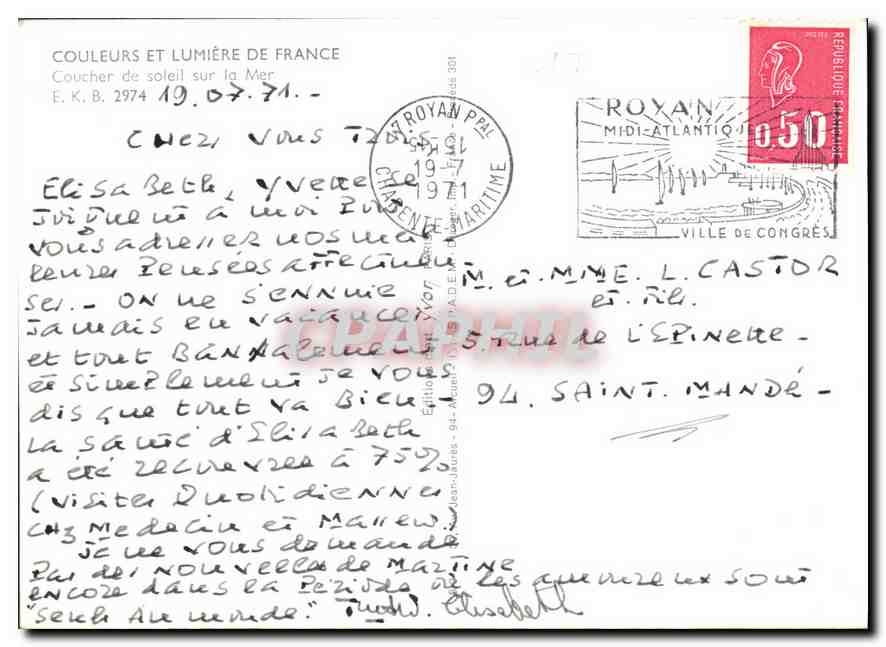 COULEURS ET LUMIÈRE DE FRANCE
Coucher de soleil sur la Mer
E. K. B. 2974 19.07.71.-
CHERS VOUS TROIS
ELISABETH, YVETTE SE
JOIGNENT A MOI POUR
VOUS ADRESSER NOS MEIL
LEURES PENSÉES AFFECTUEU
SES.- ON NE S'ENNUIE
JAMAIS EN VACANCES
ET TOUT BANALEMENT
ET SIMPLEMENT JE VOUS
DIS QUE TOUT VA BIEN.-
LA SANTÉ D'ELISABETH
A ÉTÉ RECOUVRÉE À 75%
(VISITES QUOTIDIENNES
CHZ MEDECIN ET MASSEUR)
JE NE VOUS DEMANDE
PAS DES NOUVELLES DE MARTINE
ENCORE DANS LA PÉRIODE OÙ LES AMOUREUX SONT
"SEULS AU MONDE". Elisabeth
Editions d'art Yvon PARIS
Jean-Jaurès - 94 - Arcueil
17 ROYAN PPAL
19-7
1971
CHARENTE-MARITIME
ROYAN
MIDI-ATLANTIQUE
VILLE DE CONGRÈS
REPUBLIQUE FRANÇAISE
POSTES
0,50
M. et MME. L. CASTOR
et Fils.
5. rue de l'EPINETTE -
94. SAINT. MANDÉ -
CPAPHIL